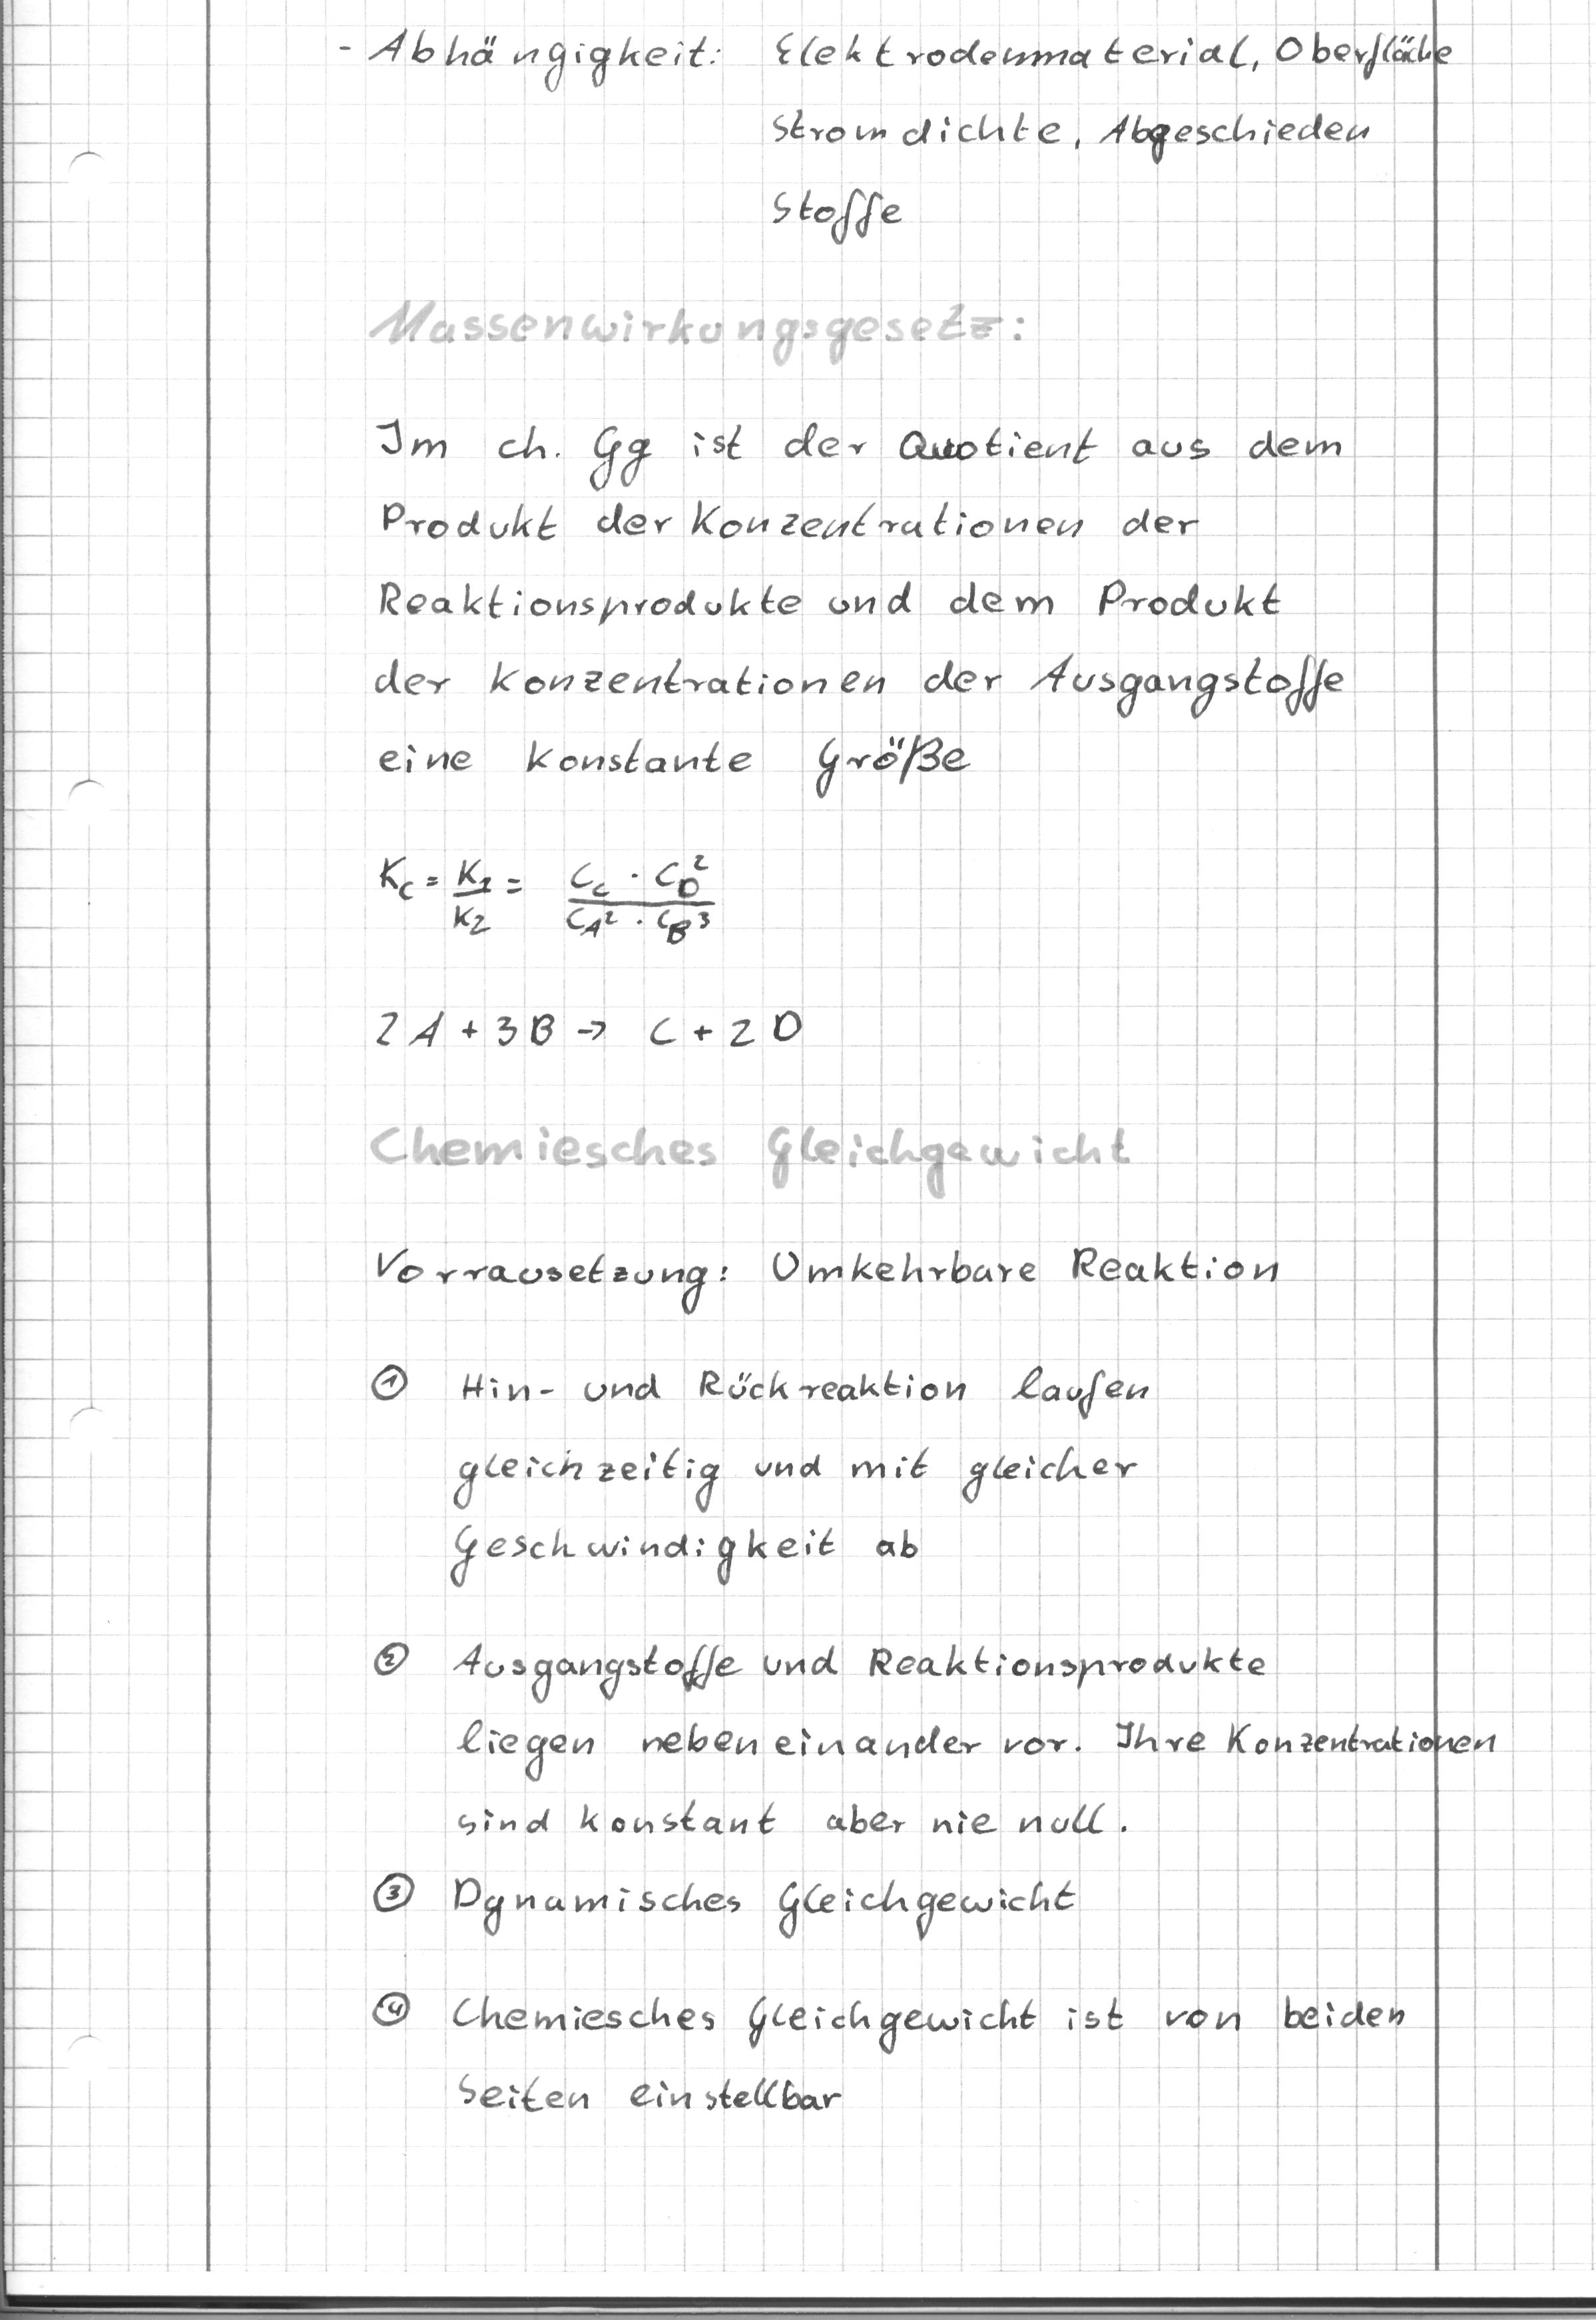 - Abhängigkeit: Elektrodenmaterial, Oberfläche
Stromdichte, Abgeschieden
Stoffe
Massenwirkungsgesetz:
Im ch. Gg ist der Quotient aus dem
Produkt der Konzentrationen der
Reaktionsprodukte und dem Produkt
der Konzentrationen der Ausgangstoffe
eine konstante Größe
K_C = K_1/K_2 = (C_C · C_D^2)/(C_A^2 · C_B^3)
2A + 3B → C + 2D
Chemiesches Gleichgewicht
Vorrausetzung: Umkehrbare Reaktion
① Hin- und Rückreaktion laufen
gleichzeitig und mit gleicher
Geschwindigkeit ab
② Ausgangstoffe und Reaktionsprodukte
liegen nebeneinander vor. Ihre Konzentrationen
sind konstant aber nie null.
③ Dynamisches Gleichgewicht
④ Chemiesches Gleichgewicht ist von beiden
Seiten einstellbar